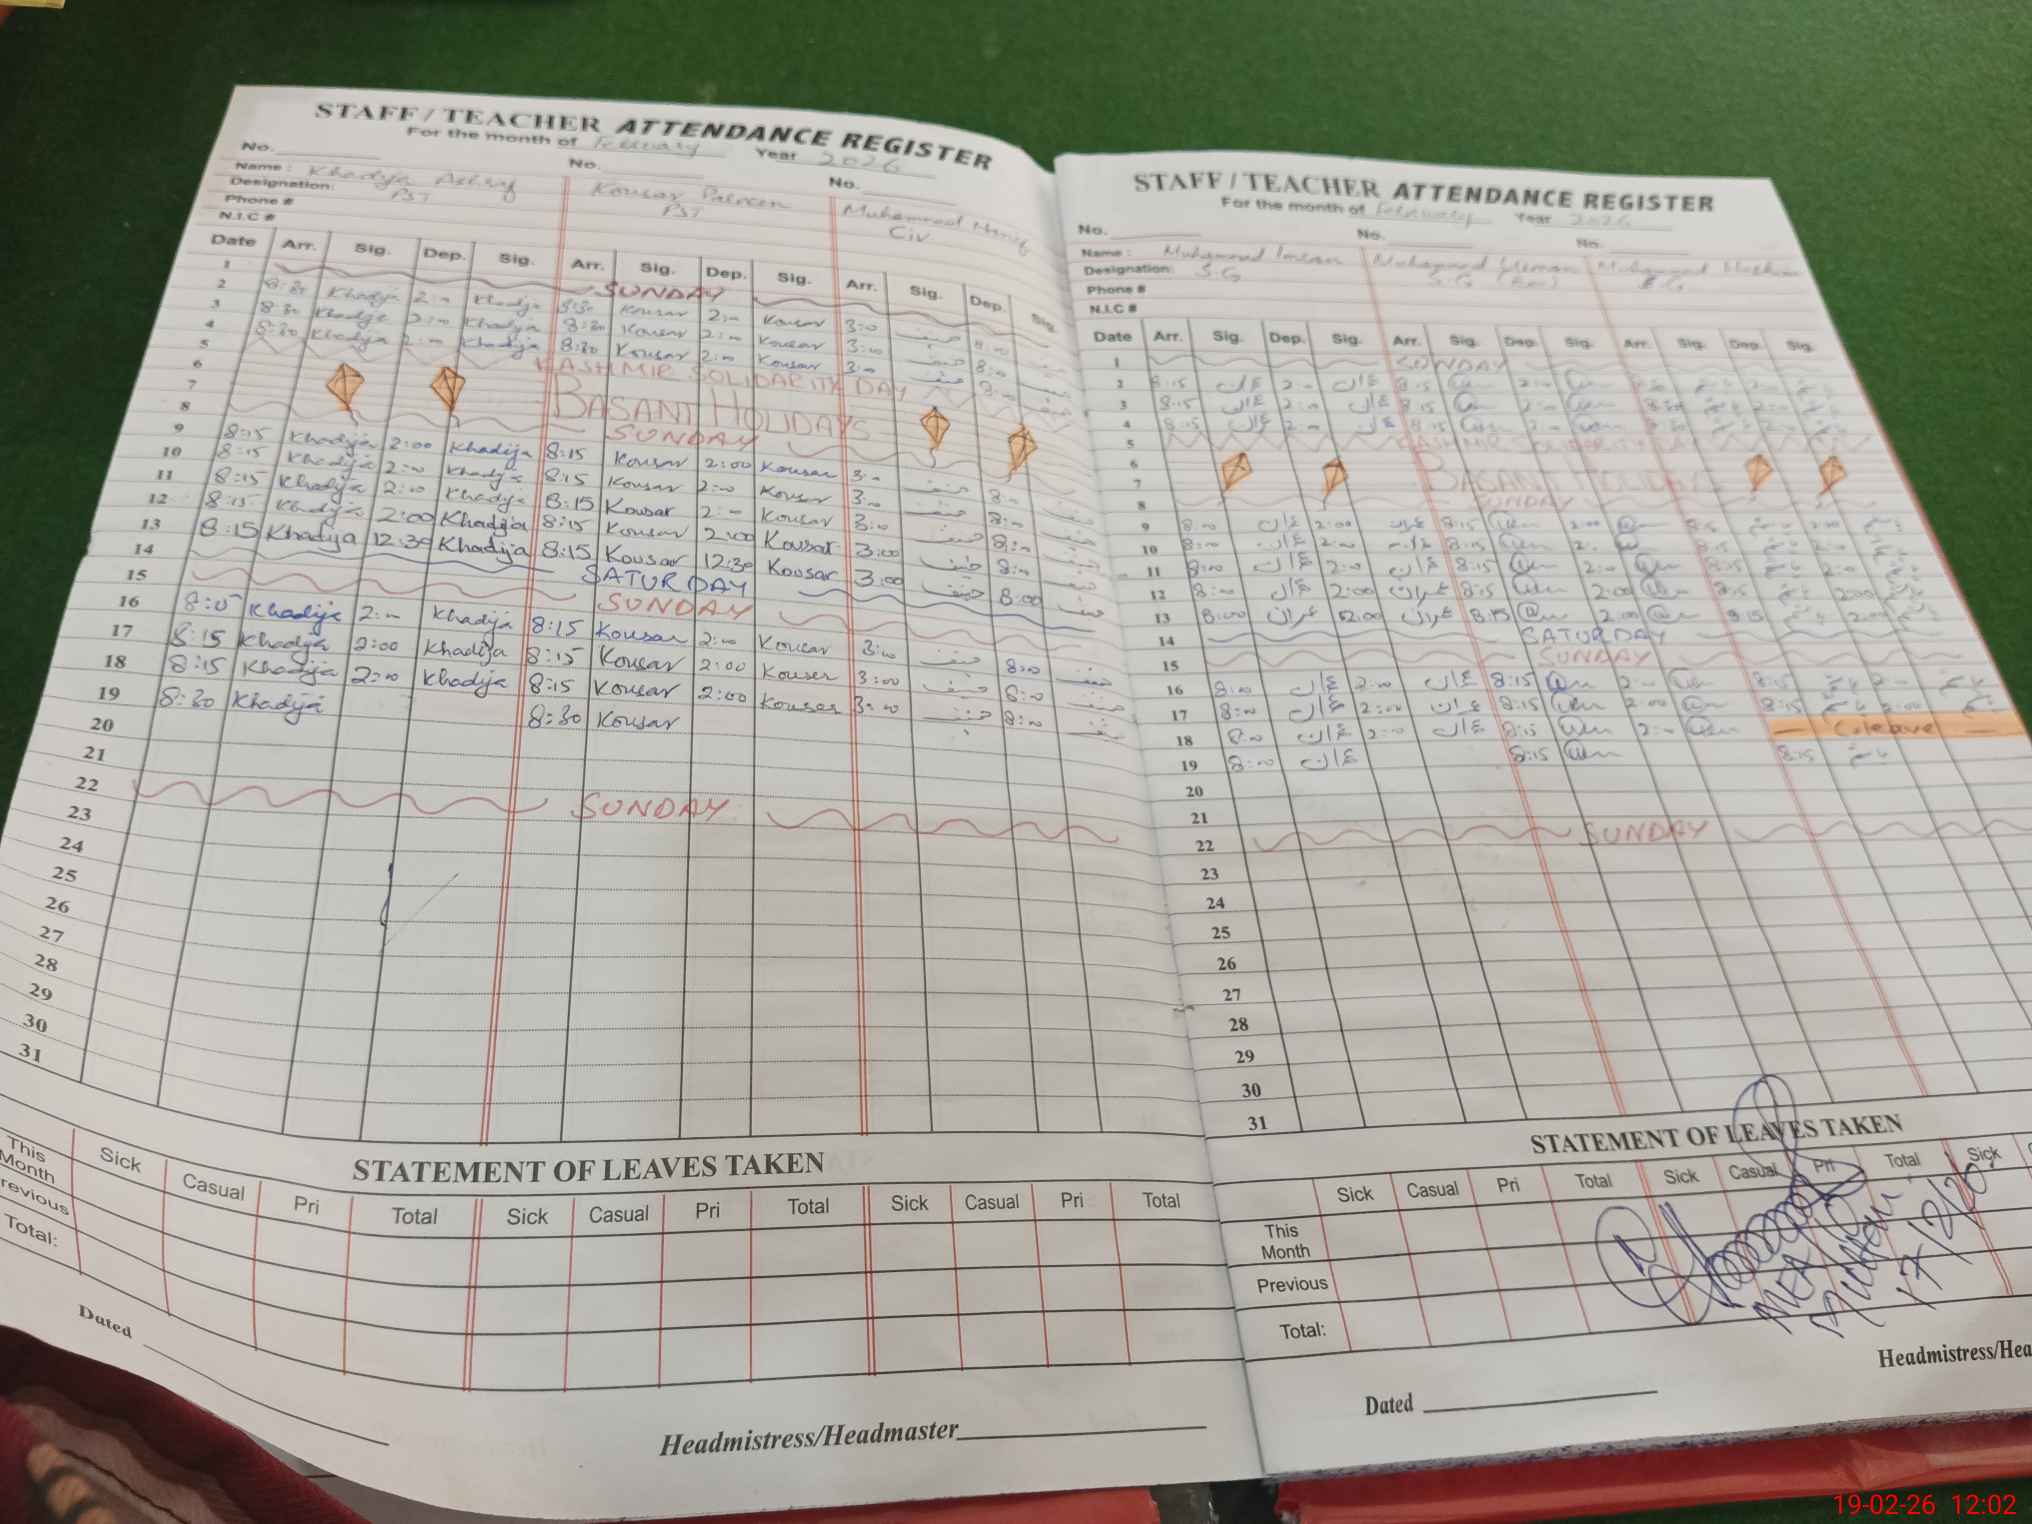 STAFF / TEACHER ATTENDANCE REGISTER
For the month of February Year 2026
No. No. No.
Name: Khadija Ashraf Kousar Parveen Muhammad Hanif
Designation: PST PST Civ
Phone #
N.I.C #
Date Arr. Sig. Dep. Sig. Arr. Sig. Dep. Sig. Arr. Sig. Dep. Sig.
1 SUNDAY
2 8:30 Khadija 2:00 Khadija 8:30 Kousar 2:00 Kousar 3:00 حنیف 8:00 حنیف
3 8:30 Khadija 2:00 Khadija 8:30 Kousar 2:00 Kousar 3:00 حنیف 8:00 حنیف
4 8:30 Khadija 2:00 Khadija 8:30 Kousar 2:00 Kousar 3:00 حنیف 8:00 حنیف
5 KASHMIR SOLIDARITY DAY
6
7 BASANT HOLIDAYS
8 SUNDAY
9 8:15 Khadija 2:00 Khadija 8:15 Kousar 2:00 Kousar 3:00 حنیف 8:00 حنیف
10 8:15 Khadija 2:00 Khadija 8:15 Kousar 2:00 Kousar 3:00 حنیف 8:00 حنیف
11 8:15 Khadija 2:00 Khadija 8:15 Kousar 2:00 Kousar 3:00 حنیف 8:00 حنیف
12 8:15 Khadija 2:00 Khadija 8:15 Kousar 2:00 Kousar 3:00 حنیف 8:00 حنیف
13 8:15 Khadija 12:30 Khadija 8:15 Kousar 12:30 Kousar 3:00 حنیف 8:00 حنیف
14 SATURDAY
15 SUNDAY
16 8:05 Khadija 2:00 Khadija 8:15 Kousar 2:00 Kousar 3:00 حنیف 8:00 حنیف
17 8:15 Khadija 2:00 Khadija 8:15 Kousar 2:00 Kouser 3:00 حنیف 8:00 حنیف
18 8:15 Khadija 2:00 Khadija 8:15 Kousar 2:00 Kouser 3:00 حنیف 8:00 حنیف
19 8:30 Khadija 8:30 Kousar
20
21
22 SUNDAY
23
24
25
26
27
28
29
30
31
STATEMENT OF LEAVES TAKEN
Sick Casual Pri Total Sick Casual Pri Total Sick Casual Pri Total
This Month
Previous
Total:
Dated
Headmistress/Headmaster
STAFF / TEACHER ATTENDANCE REGISTER
For the month of February Year 2026
No. No. No.
Name: Muhammad Imran Muhammad Usman Muhammad Hashim
Designation: S.G S.G
Phone #
N.I.C #
Date Arr. Sig. Dep. Sig. Arr. Sig. Dep. Sig. Arr. Sig. Dep. Sig.
1 SUNDAY
2 8:15 عمران 2:00 عمران 8:15 2:00
3 8:15 عمران 2:00 عمران 8:15 2:00
4 8:15 عمران 2:00 عمران
5 KASHMIR SOLIDARITY DAY
6
7 BASANT HOLIDAYS
8 SUNDAY
9 8:00 عمران 2:00 عمران 8:15 2:00
10 8:00 عمران 2:00 عمران 8:15
11 8:00 عمران 2:00 عمران 8:15 2:00
12 8:00 عمران 2:00 عمران 8:15 2:00 8:15 2:00
13 8:00 عمران 12:00 عمران 8:15 2:00 8:15 2:00
14 SATURDAY
15 SUNDAY
16 8:00 عمران 2:00 عمران 8:15 2:00 8:15 2:00
17 8:00 عمران 2:00 عمران 8:15 2:00 8:15 2:00
18 8:00 عمران 2:00 عمران 8:15 2:00 C.leave
19 8:00 عمران 8:15 8:15
20
21
22 SUNDAY
23
24
25
26
27
28
29
30
31
STATEMENT OF LEAVES TAKEN
Sick Casual Pri Total Sick Casual Pri Total Sick
This Month
Previous
Total:
MEA
Multan
17/2/26
Dated
Headmistress/Hea
19-02-26 12:02